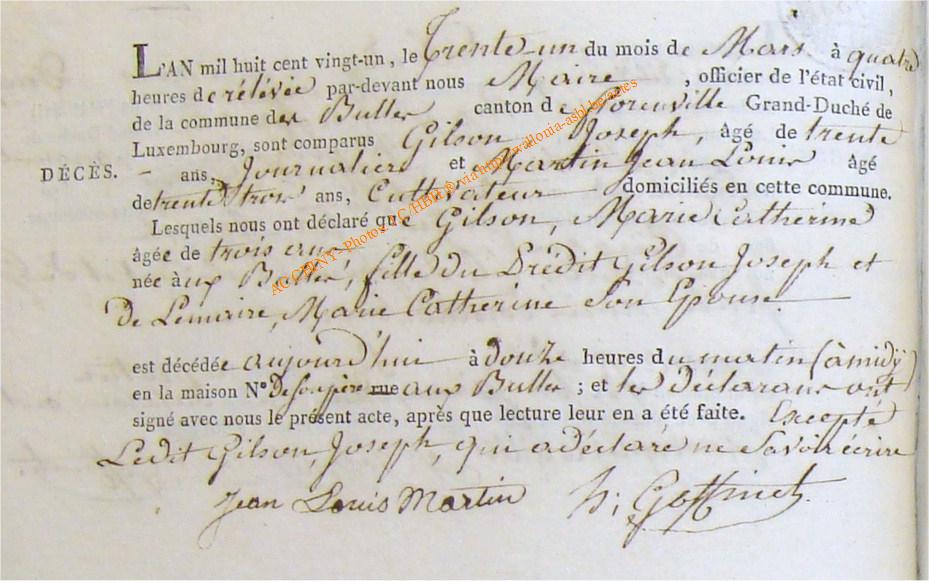 L'AN mil huit cent vingt-un, le Trente un du mois de Mars à quatre
heures de rélévée par-devant nous Maire, officier de l'état civil,
de la commune des Bulles canton de Florenville Grand-Duché de
Luxembourg, sont comparus Gilson, Joseph, âgé de trente
DÉCÈS. - ans, Journalier et Martin Jean Louis âgé
de trente trois ans, Cultivateur domiciliés en cette commune.
Lesquels nous ont déclaré que Gilson, Marie Catherine
âgée de trois ans
née à ux Bulles, fille du Prédit Gilson Joseph et
De Lemaire, Marie Catherine Son Epouse.
est décédée aujourd'hui à douze heures du matin (à midÿ)
en la maison N° De son père rue aux Bulles ; et les Déclarans ont
signé avec nous le présent acte, après que lecture leur en a été faite. Excepté
Ledit Gilson, Joseph, qui a déclaré ne Savoir écrire
Jean Louis Martin h; Goffinet